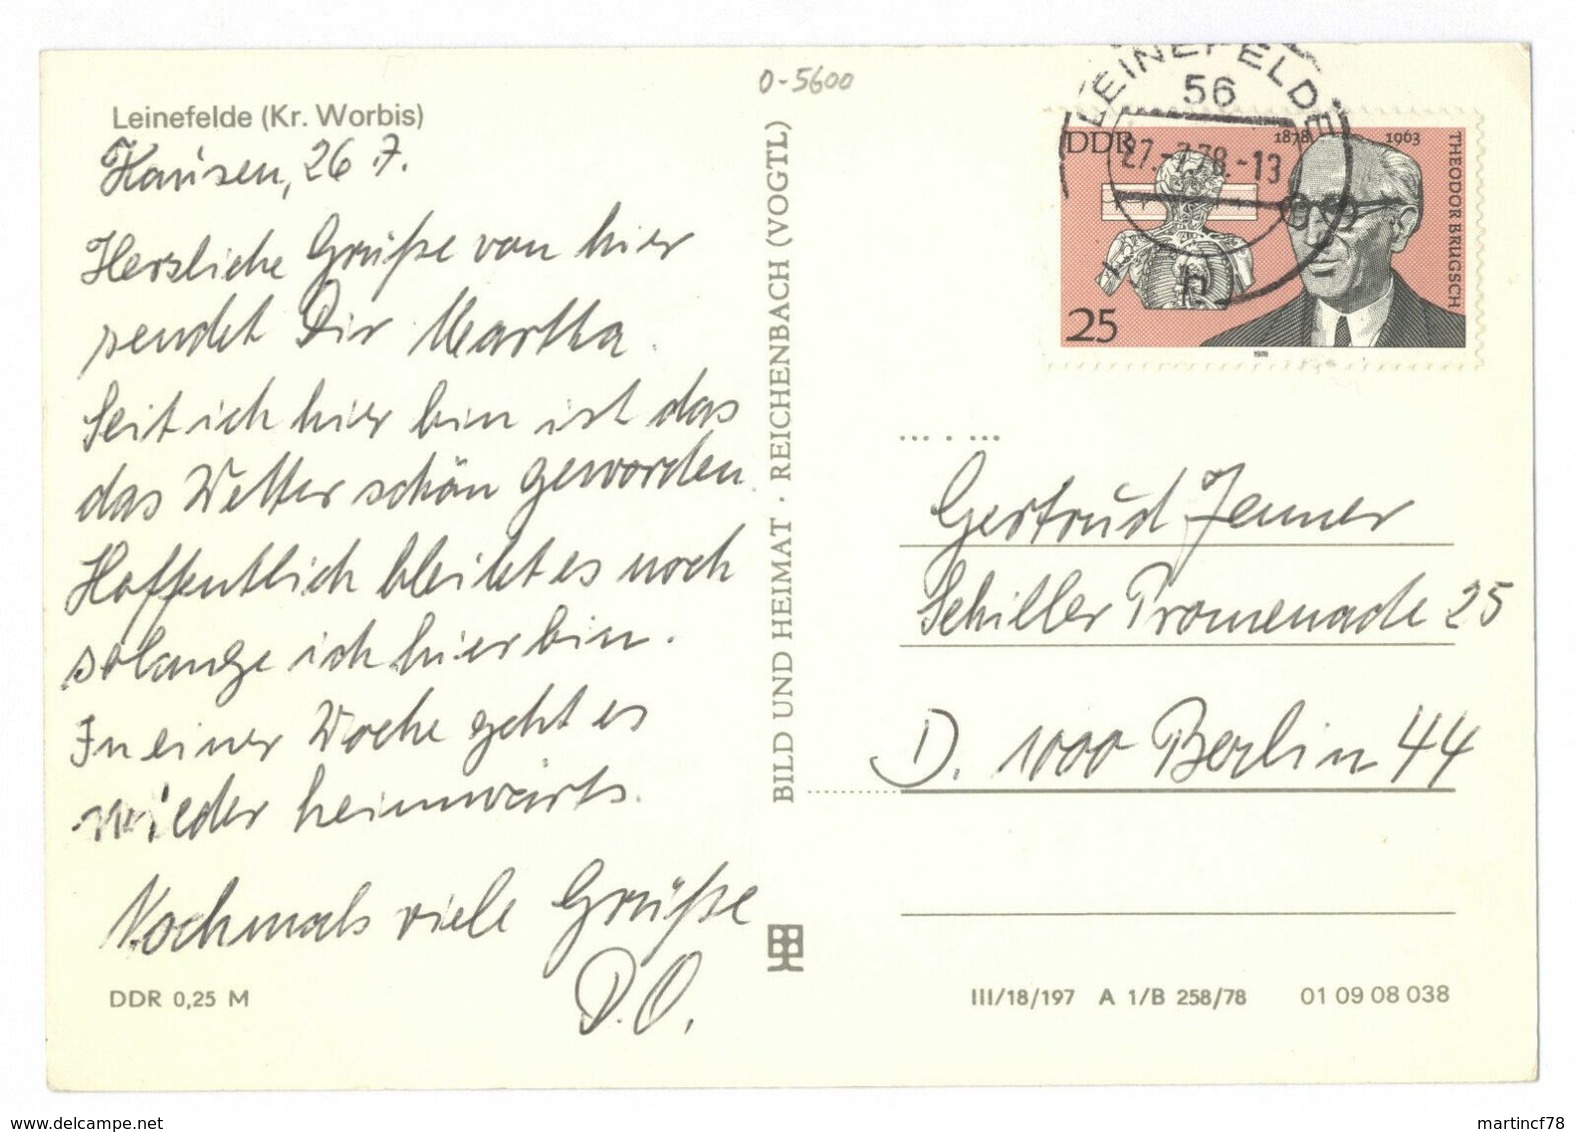 O-5600
Leinefelde (Kr. Worbis)
Hausen, 26.7.
Herzliche Grüße von hier
sendet Dir Martha.
Seit ich hier bin ist das
das Wetter schön geworden.
Hoffentlich bleibt es noch
solange ich hier bin.
In einer Woche geht es
wieder heimwärts.
Nochmals viele Grüße
D.O.
DDR 0,25 M
BILD UND HEIMAT · REICHENBACH (VOGTL)
LEINEFELDE
56
27.-7.78.-13
DDR
1878
1963
THEODOR BRUGSCH
25
1978
Gertrud Jenner
Schiller Promenade 25
D. 1000 Berlin 44
III/18/197 A 1/B 258/78 01 09 08 038
www.delcampe.net
martincf78